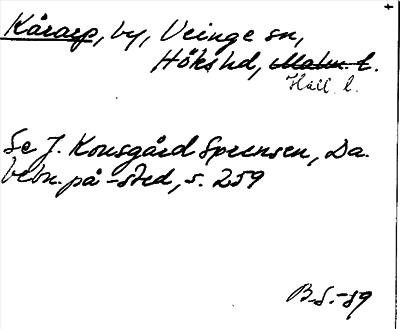 Kårarp, by, Veinge sn,
Hökshd, Malm. l.
Hall. l.
Se J. Kousgård Sørensen, Da.
bebn. på -sted, s. 259
B.S.-89